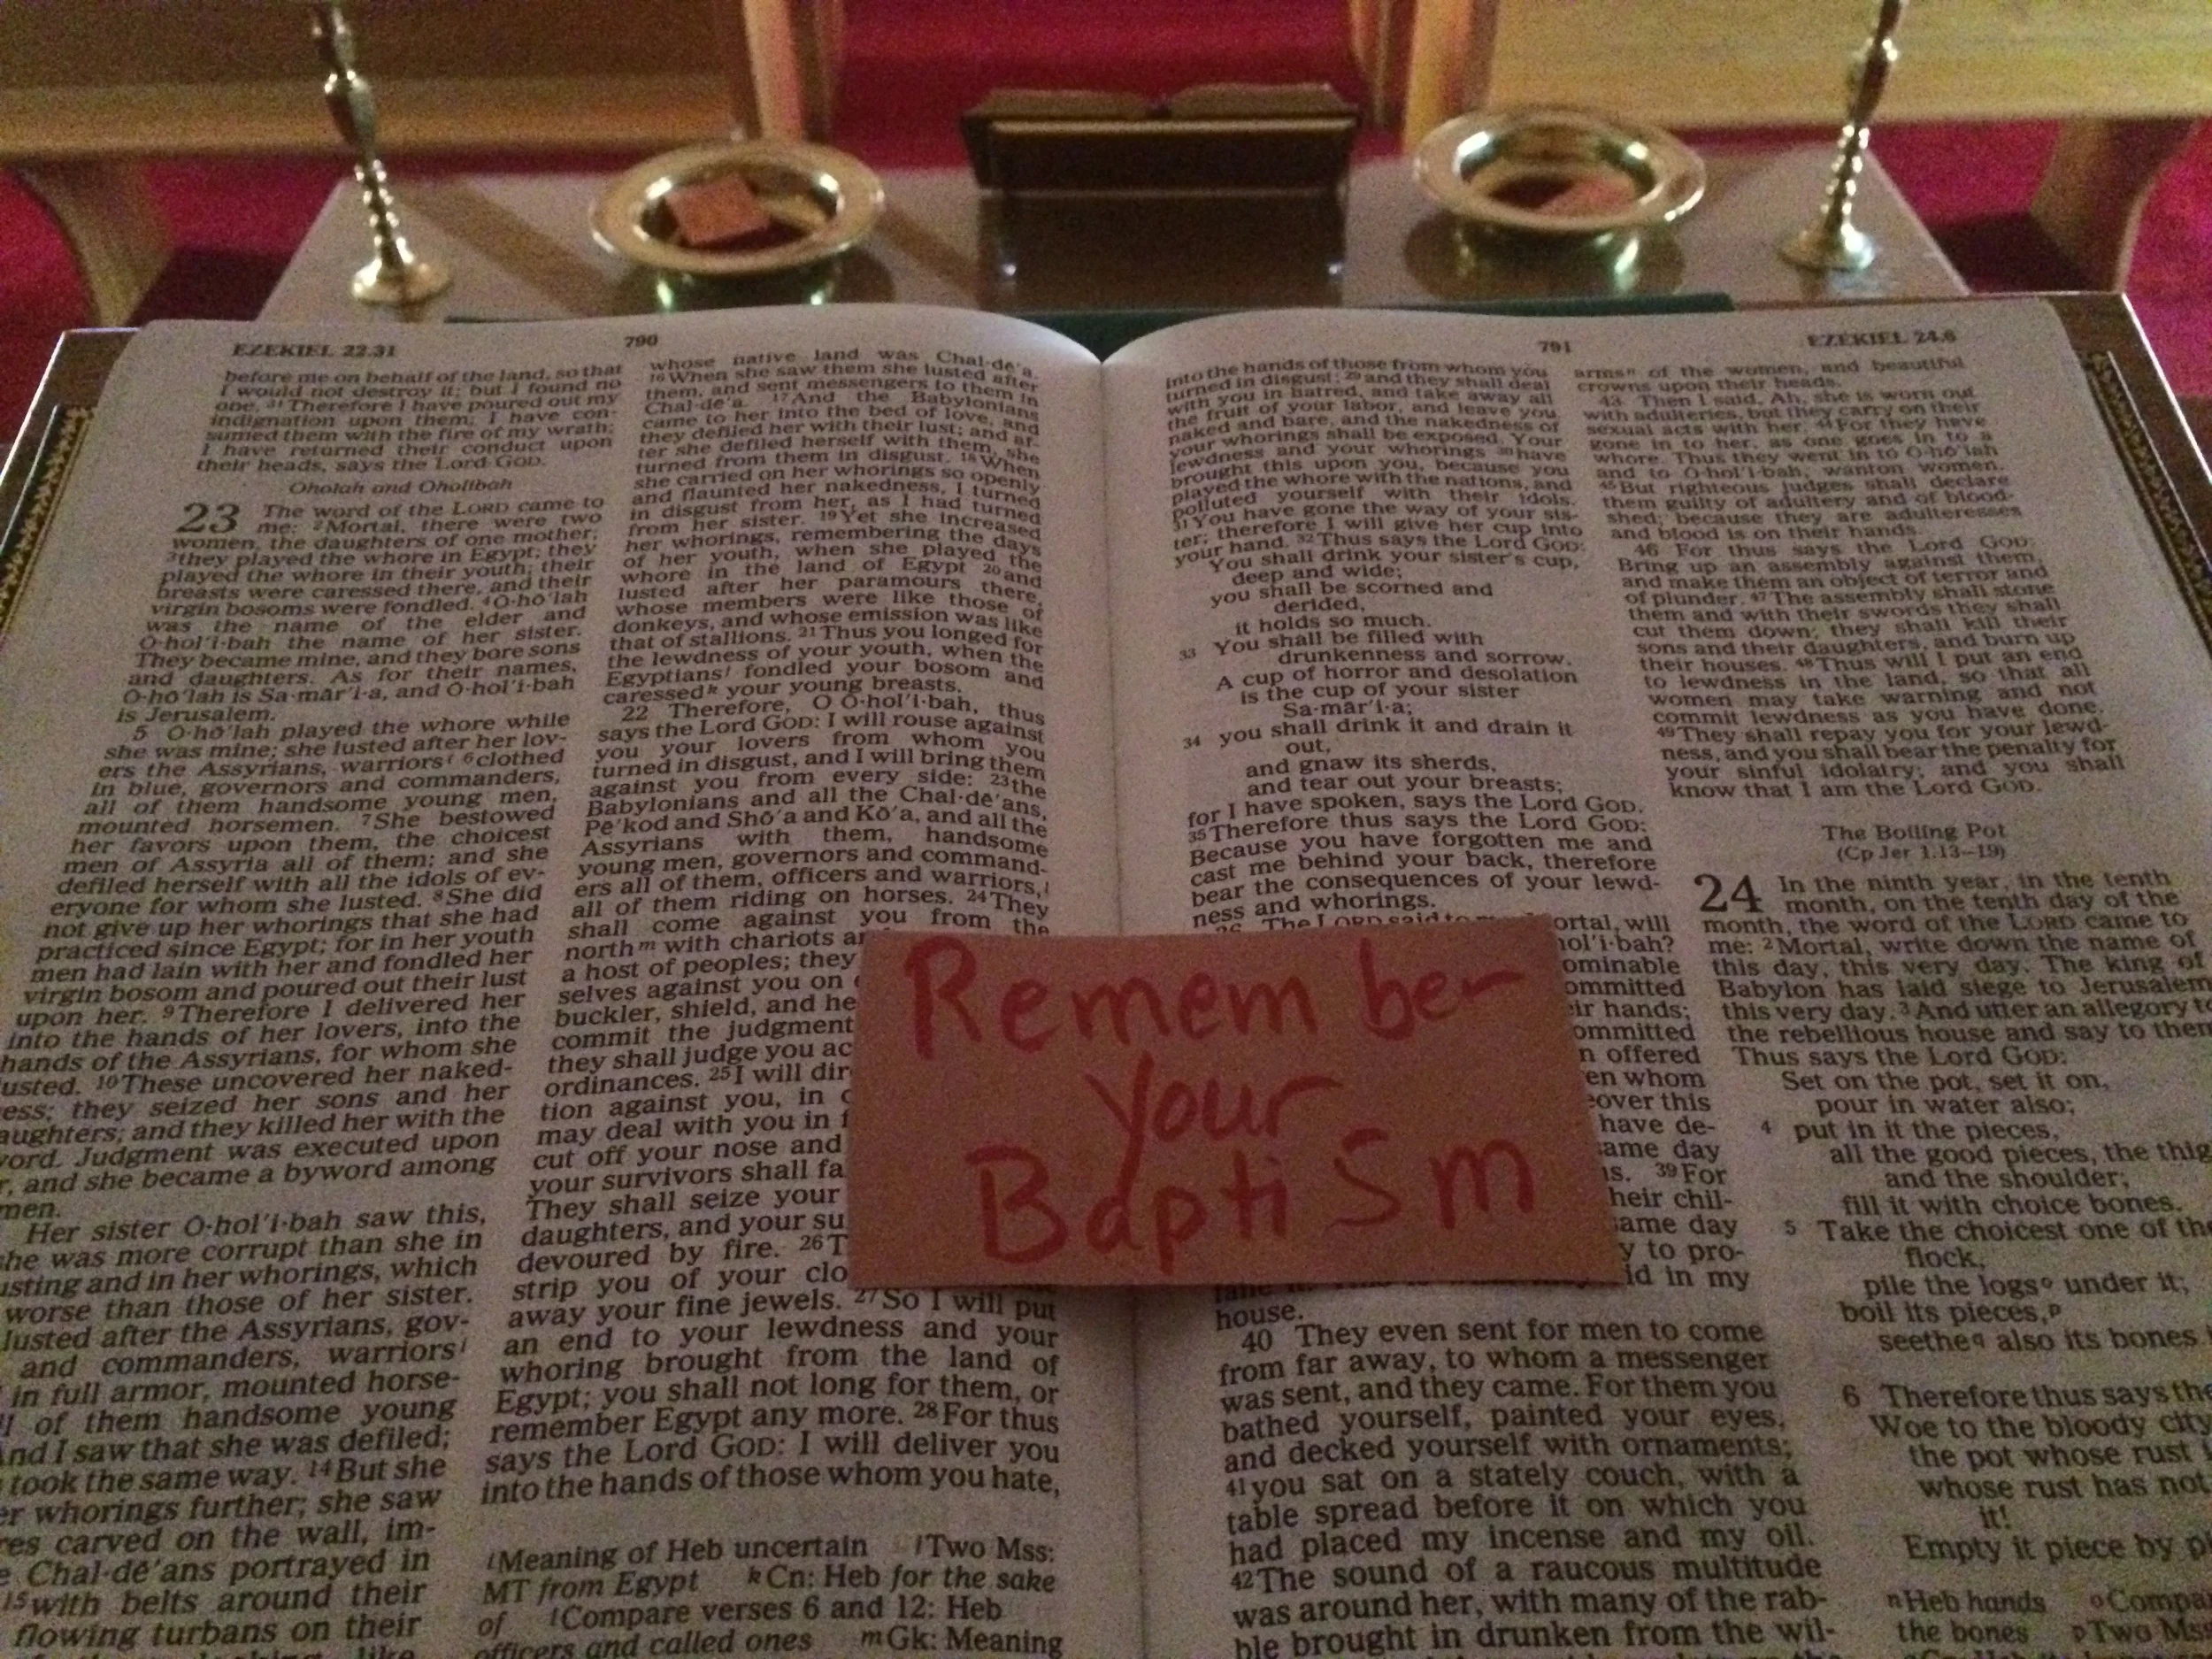 EZEKIEL 22.31
790
before me on behalf of the land, so that
I would not destroy it; but I found no
one. 31 Therefore I have poured out my
indignation upon them; I have con-
sumed them with the fire of my wrath;
I have returned their conduct upon
their heads, says the Lord GOD.
Oholah and Oholibah
23 The word of the LORD came to
me: 2 Mortal, there were two
women, the daughters of one mother;
3 they played the whore in Egypt; they
played the whore in their youth; their
breasts were caressed there, and their
virgin bosoms were fondled. 4 O·hō′lah
was the name of the elder and
O·hol′i·bah the name of her sister.
They became mine, and they bore sons
and daughters. As for their names,
O·hō′lah is Sa·mãr′i·a, and O·hol′i·bah
is Jerusalem.
5 O·hō′lah played the whore while
she was mine; she lusted after her lov-
ers the Assyrians, warriors i 6 clothed
in blue, governors and commanders,
all of them handsome young men,
mounted horsemen. 7 She bestowed
her favors upon them, the choicest
men of Assyria all of them; and she
defiled herself with all the idols of ev-
eryone for whom she lusted. 8 She did
not give up her whorings that she had
practiced since Egypt; for in her youth
men had lain with her and fondled her
virgin bosom and poured out their lust
upon her. 9 Therefore I delivered her
into the hands of her lovers, into the
hands of the Assyrians, for whom she
lusted. 10 These uncovered her naked-
ess; they seized her sons and her
aughters; and they killed her with the
word. Judgment was executed upon
r, and she became a byword among
men.
Her sister O·hol′i·bah saw this,
she was more corrupt than she in
usting and in her whorings, which
worse than those of her sister.
lusted after the Assyrians, gov-
and commanders, warriors i
in full armor, mounted horse-
of them handsome young
And I saw that she was defiled;
took the same way. 14 But she
er whorings further; she saw
res carved on the wall, im-
Chal·dē′ans portrayed in
15 with belts around their
flowing turbans on their
whose native land was Chal·dē′a.
16 When she saw them she lusted after
them, and sent messengers to them in
Chal·dē′a. 17 And the Babylonians
came to her into the bed of love, and
they defiled her with their lust; and af-
ter she defiled herself with them, she
turned from them in disgust. 18 When
she carried on her whorings so openly
and flaunted her nakedness, I turned
in disgust from her, as I had turned
from her sister. 19 Yet she increased
her whorings, remembering the days
of her youth, when she played the
whore in the land of Egypt 20 and
lusted after her paramours there,
whose members were like those of
donkeys, and whose emission was like
that of stallions. 21 Thus you longed for
the lewdness of your youth, when the
Egyptians j fondled your bosom and
caressed k your young breasts.
22 Therefore, O O·hol′i·bah, thus
says the Lord GOD: I will rouse against
you your lovers from whom you
turned in disgust, and I will bring them
against you from every side: 23 the
Babylonians and all the Chal·dē′ans,
Pē′kod and Shō′a and Kō′a, and all the
Assyrians with them, handsome
young men, governors and command-
ers all of them, officers and warriors, l
all of them riding on horses. 24 They
shall come against you from the
north m with chariots a
a host of peoples; they
selves against you on
buckler, shield, and he
commit the judgment
they shall judge you ac
ordinances. 25 I will dir
tion against you, in
may deal with you in f
cut off your nose and
your survivors shall fa
They shall seize your
daughters, and your su
devoured by fire. 26 T
strip you of your clo
away your fine jewels. 27 So I will put
an end to your lewdness and your
whoring brought from the land of
Egypt; you shall not long for them, or
remember Egypt any more. 28 For thus
says the Lord GOD: I will deliver you
into the hands of those whom you hate,
i Meaning of Heb uncertain j Two Mss:
MT from Egypt k Cn: Heb for the sake
of l Compare verses 6 and 12: Heb
officers and called ones m Gk: Meaning
791
EZEKIEL 24.6
into the hands of those from whom you
turned in disgust; 29 and they shall deal
with you in hatred, and take away all
the fruit of your labor, and leave you
naked and bare, and the nakedness of
your whorings shall be exposed. Your
lewdness and your whorings 30 have
brought this upon you, because you
played the whore with the nations, and
polluted yourself with their idols.
31 You have gone the way of your sis-
ter; therefore I will give her cup into
your hand. 32 Thus says the Lord GOD:
You shall drink your sister's cup,
deep and wide;
you shall be scorned and
derided,
it holds so much.
33 You shall be filled with
drunkenness and sorrow.
A cup of horror and desolation
is the cup of your sister
Sa·mãr′i·a;
34 you shall drink it and drain it
out,
and gnaw its sherds,
and tear out your breasts;
for I have spoken, says the Lord GOD.
35 Therefore thus says the Lord GOD:
Because you have forgotten me and
cast me behind your back, therefore
bear the consequences of your lewd-
ness and whorings.
36 The LORD said to me: Mortal, will
hol′i·bah?
ominable
ommitted
eir hands;
ommitted
n offered
en whom
eover this
have de-
same day
s. 39 For
heir chil-
same day
y to pro-
id in my
house.
40 They even sent for men to come
from far away, to whom a messenger
was sent, and they came. For them you
bathed yourself, painted your eyes,
and decked yourself with ornaments;
41 you sat on a stately couch, with a
table spread before it on which you
had placed my incense and my oil.
42 The sound of a raucous multitude
was around her, with many of the rab-
ble brought in drunken from the wil-
arms n of the women, and beautiful
crowns upon their heads.
43 Then I said, Ah, she is worn out
with adulteries, but they carry on their
sexual acts with her. 44 For they have
gone in to her, as one goes in to a
whore. Thus they went in to O·hō′lah
and to O·hol′i·bah, wanton women.
45 But righteous judges shall declare
them guilty of adultery and of blood-
shed; because they are adulteresses
and blood is on their hands.
46 For thus says the Lord GOD:
Bring up an assembly against them,
and make them an object of terror and
of plunder. 47 The assembly shall stone
them and with their swords they shall
cut them down; they shall kill their
sons and their daughters, and burn up
their houses. 48 Thus will I put an end
to lewdness in the land, so that all
women may take warning and not
commit lewdness as you have done.
49 They shall repay you for your lewd-
ness, and you shall bear the penalty for
your sinful idolatry; and you shall
know that I am the Lord GOD.
The Boiling Pot
(Cp Jer 1.13–19)
24 In the ninth year, in the tenth
month, on the tenth day of the
month, the word of the LORD came to
me: 2 Mortal, write down the name of
this day, this very day. The king of
Babylon has laid siege to Jerusalem
this very day. 3 And utter an allegory to
the rebellious house and say to them
Thus says the Lord GOD:
Set on the pot, set it on,
pour in water also;
4 put in it the pieces,
all the good pieces, the thig
and the shoulder;
fill it with choice bones.
5 Take the choicest one of the
flock,
pile the logs o under it;
boil its pieces, p
seethe q also its bones
6 Therefore thus says the
Woe to the bloody city
the pot whose rust
whose rust has not
it!
Empty it piece by pi
n Heb hands o Compa
the bones p Two Mss
Remember
your
Baptism